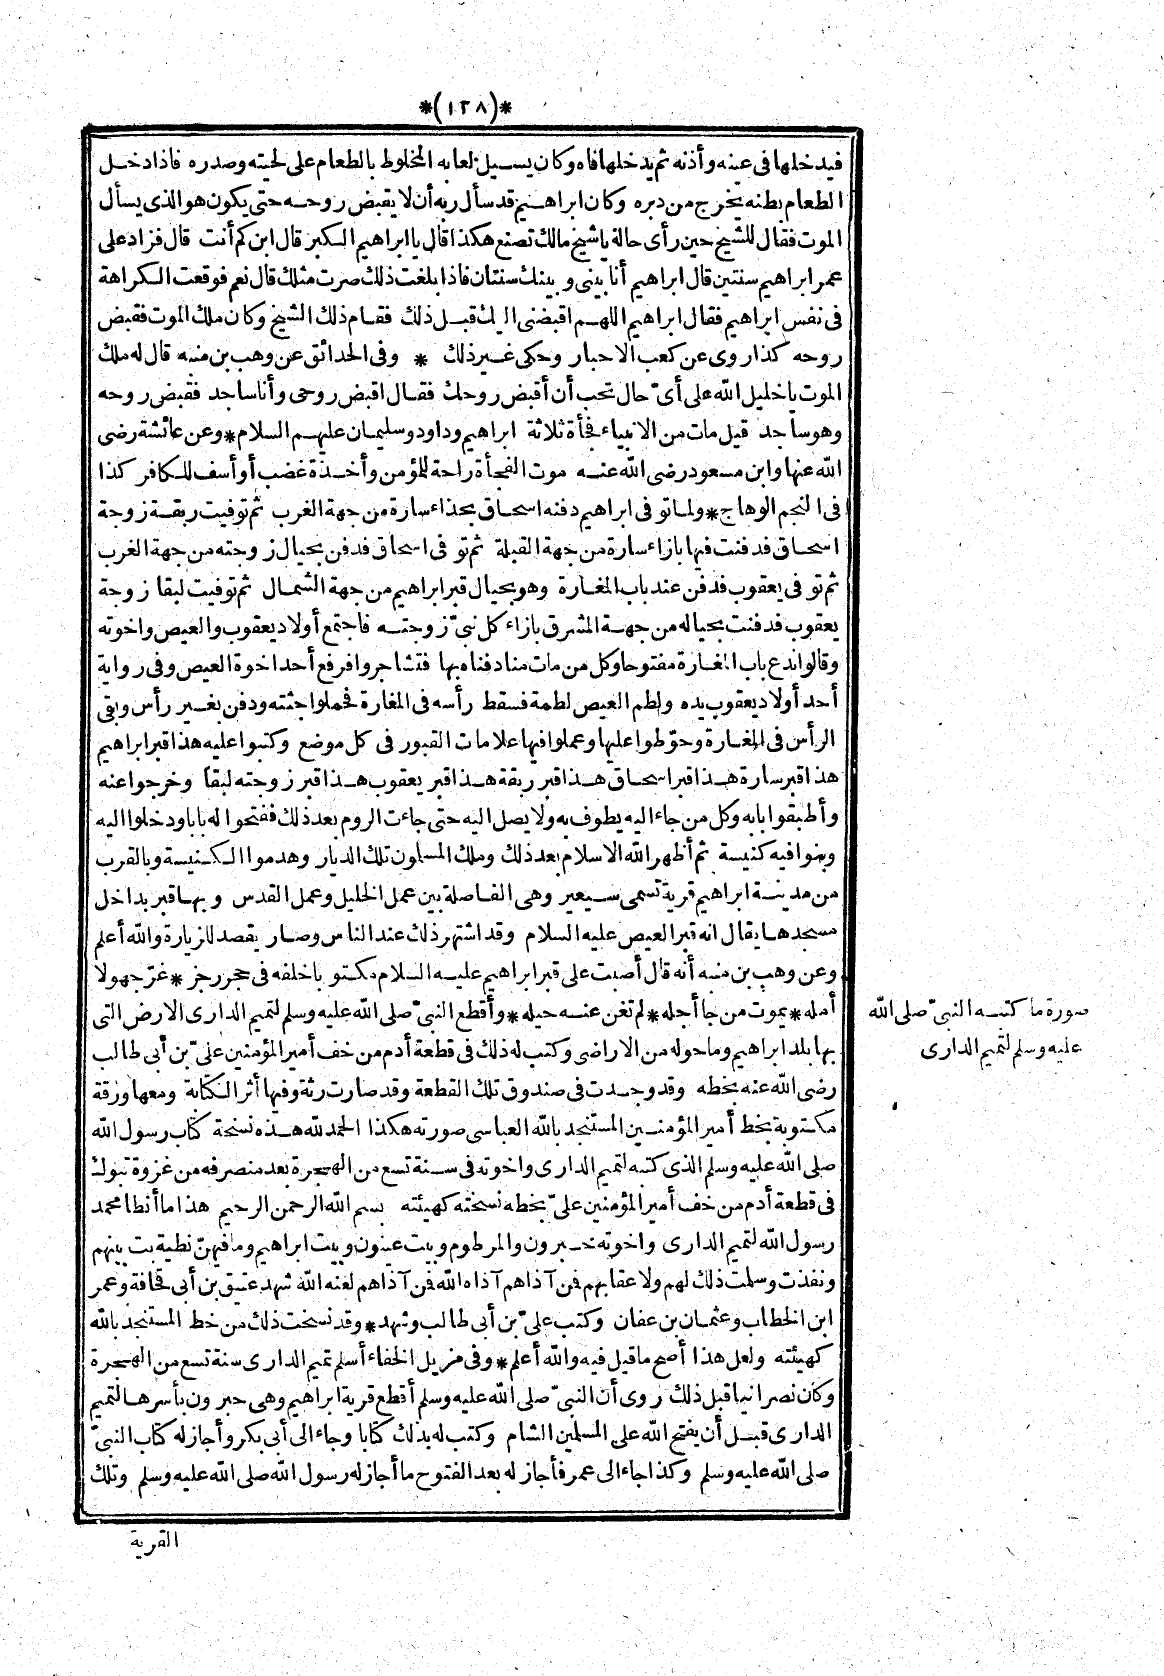 *(١٢٨)*
فيدخلها في عينه وأذنه ثم يدخلها فاه وكان يسيل لعابه المخلوط بالطعام على لحيته وصدره فاذا دخل
الطعام بطنه يخرج من دبره وكان ابراهيم قد سأل ربه أن لا يقبض روحه حتى يكون هو الذى يسأل
الموت فقال للشيخ حين رأى حاله يا شيخ مالك تصنع هكذا قال يا ابراهيم الكبر قال ابن كم أنت قال فزاد على
عمر ابراهيم سنتين قال ابراهيم أنا بينى وبينك سنتان فاذا بلغت ذلك صرت مثلك قال نعم فوقعت الكراهة
فى نفس ابراهيم فقال ابراهيم اللهم اقبضنى اليك قبل ذلك فقام ذلك الشيخ وكان ملك الموت فقبض
روحه كذا روى عن كعب الاحبار وحكى غير ذلك * وفى الحدائق عن وهب بن منبه قال له ملك
الموت يا خليل الله على أىّ حال تحب أن أقبض روحك فقال اقبض روحى وأنا ساجد فقبض روحه
وهو ساجد قيل مات من الانبياء فجأة ثلاثة ابراهيم وداود وسليمان عليهم السلام * وعن عائشة رضى
الله عنها وابن مسعود رضى الله عنه موت الفجأة راحة للمؤمن وأخذة غضب أو أسف للكافر كذا
فى النجم الوهاج * ولما توفى ابراهيم دفنه اسحاق بحذاء سارة من جهة الغرب ثم توفيت ربقة زوجة
اسحاق فدفنت فيها بازاء سارة من جهة القبلة ثم توفى اسحاق فدفن بحيال زوجته من جهة الغرب
ثم توفى يعقوب فدفن عند باب المغارة وهو بحيال قبر ابراهيم من جهة الشمال ثم توفيت لبقا زوجة
يعقوب فدفنت بحياله من جهة المشرق بازاء كل نبىّ زوجته فاجتمع أولاد يعقوب والعيص واخوته
وقالوا ندع باب المغارة مفتوحا وكل من مات منا دفناه بها فتشاجروا فرفع أحد اخوة العيص وفى رواية
أحد أولاد يعقوب يده ولطم العيص لطمة فسقط رأسه فى المغارة فحملوا جثته ودفن بغير رأس وبقى
الرأس فى المغارة وحوّطوا عليها وعملوا فيها علامات القبور فى كل موضع وكتبوا عليه هذا قبر ابراهيم
هذا قبر سارة هذا قبر اسحاق هذا قبر ربقة هذا قبر يعقوب هذا قبر زوجته لبقا وخرجوا عنه
وأطبقوا بابه وكل من جاء اليه يطوف به ولا يصل اليه حتى جاءت الروم بعد ذلك ففتحوا له بابا ودخلوا اليه
وبنوا فيه كنيسة ثم أظهر الله الاسلام بعد ذلك وملك المسلمون تلك الديار وهدموا الكنيسة وبالقرب
من مدينة ابراهيم قرية تسمى سيعير وهى الفاصلة بين عمل الخليل وعمل القدس وبها قبر بداخل
مسجدها يقال انه قبر العيص عليه السلام وقد اشتهر ذلك عند الناس وصار يقصد للزيارة والله أعلم
وعن وهب بن منبه أنه قال أصبت على قبر ابراهيم عليه السلام مكتوبا خلفه فى حجر رجز * غرّ جهولا
أمله * يموت من جا أجله * لم تغن عنه حيله * وأقطع النبىّ صلى الله عليه وسلم لتميم الدارى الارض التى
بها بلد ابراهيم وما حوله من الاراضى وكتب له ذلك فى قطعة أدم من خف أمير المؤمنين علىّ بن أبى طالب
رضى الله عنه بخطه وقد وجدت فى صندوق تلك القطعة وقد صارت رثة وفيها أثر الكتابة ومعها ورقة
مكتوبة بخط أمير المؤمنين المستنجد بالله العباسى صورته هكذا الحمد لله هذه نسخة كتاب رسول الله
صلى الله عليه وسلم الذى كتبه لتميم الدارى واخوته فى سنة تسع من الهجرة بعد منصرفه من غزوة تبوك
فى قطعة أدم من خف أمير المؤمنين علىّ بخطه نسخته كهيئته بسم الله الرحمن الرحيم هذا ما أنطا محمد
رسول الله لتميم الدارى واخوته حبرون والمرطوم وبيت عينون وبيت ابراهيم وما فيهنّ نطية بت بينهم
ونفذت وسلمت ذلك لهم ولاعقابهم فمن آذاهم آذاه الله فمن آذاهم لعنه الله شهد عتيق بن أبى قحافة وعمر
ابن الخطاب وعثمان بن عفان وكتب علىّ بن أبى طالب وشهد * وقد نسخت ذلك من خط المستنجد بالله
كهيئته ولعل هذا أصح ما قيل فيه والله أعلم * وفى مزيل الخفاء أسلم تميم الدارى سنة تسع من الهجرة
وكان نصرانيا قبل ذلك روى أن النبىّ صلى الله عليه وسلم أقطع قرية ابراهيم وهى حبرون بأسرها لتميم
الدارى قبل أن يفتح الله على المسلمين الشام وكتب له بذلك كتابا وجاء الى أبى بكر وأجاز له كتاب النبىّ
صلى الله عليه وسلم وكذا جاء الى عمر فأجاز له بعد الفتوح ما أجاز له رسول الله صلى الله عليه وسلم وتلك
القرية
صورة ما كتبه النبىّ صلى الله
عليه وسلم لتميم الدارى